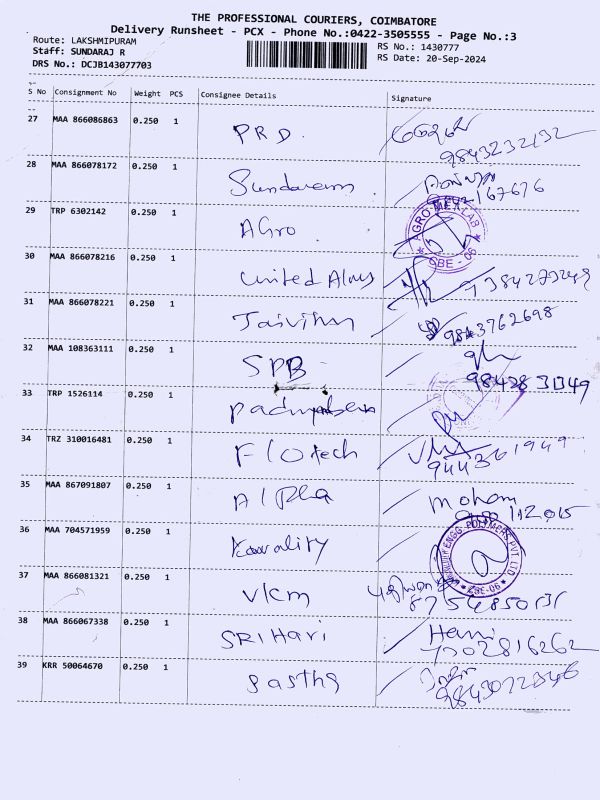 THE PROFESSIONAL COURIERS, COIMBATORE
Delivery Runsheet - PCX - Phone No.:0422-3505555 - Page No.:3
Route: LAKSHMIPURAM
RS No.: 1430777
Staff: SUNDARAJ R
RS Date: 20-Sep-2024
DRS No.: DCJB143077703
S No Consignment No Weight PCS Consignee Details Signature
27 MAA 866086863 0.250 1 PRD. 9843232132
28 MAA 866078172 0.250 1 Sundaram
29 TRP 6302142 0.250 1 AGro. AGRO MEX LAB CBE-06
30 MAA 866078216 0.250 1 United 7384273249
31 MAA 866078221 0.250 1 9843762698
32 MAA 108363111 0.250 1 SPB
33 TRP 1526114 0.250 1
34 TRZ 310016481 0.250 1 Flotech 944361949
35 MAA 867091807 0.250 1 Alpha Moham
36 MAA 704571959 0.250 1 Kovality ENGG. POLYMERS PVT LTD CBE-06
37 MAA 866081321 0.250 1 vkm 8754850131
38 MAA 866067338 0.250 1 SRI Hari Hari 7302816262
39 KRR 50064670 0.250 1 Sastha